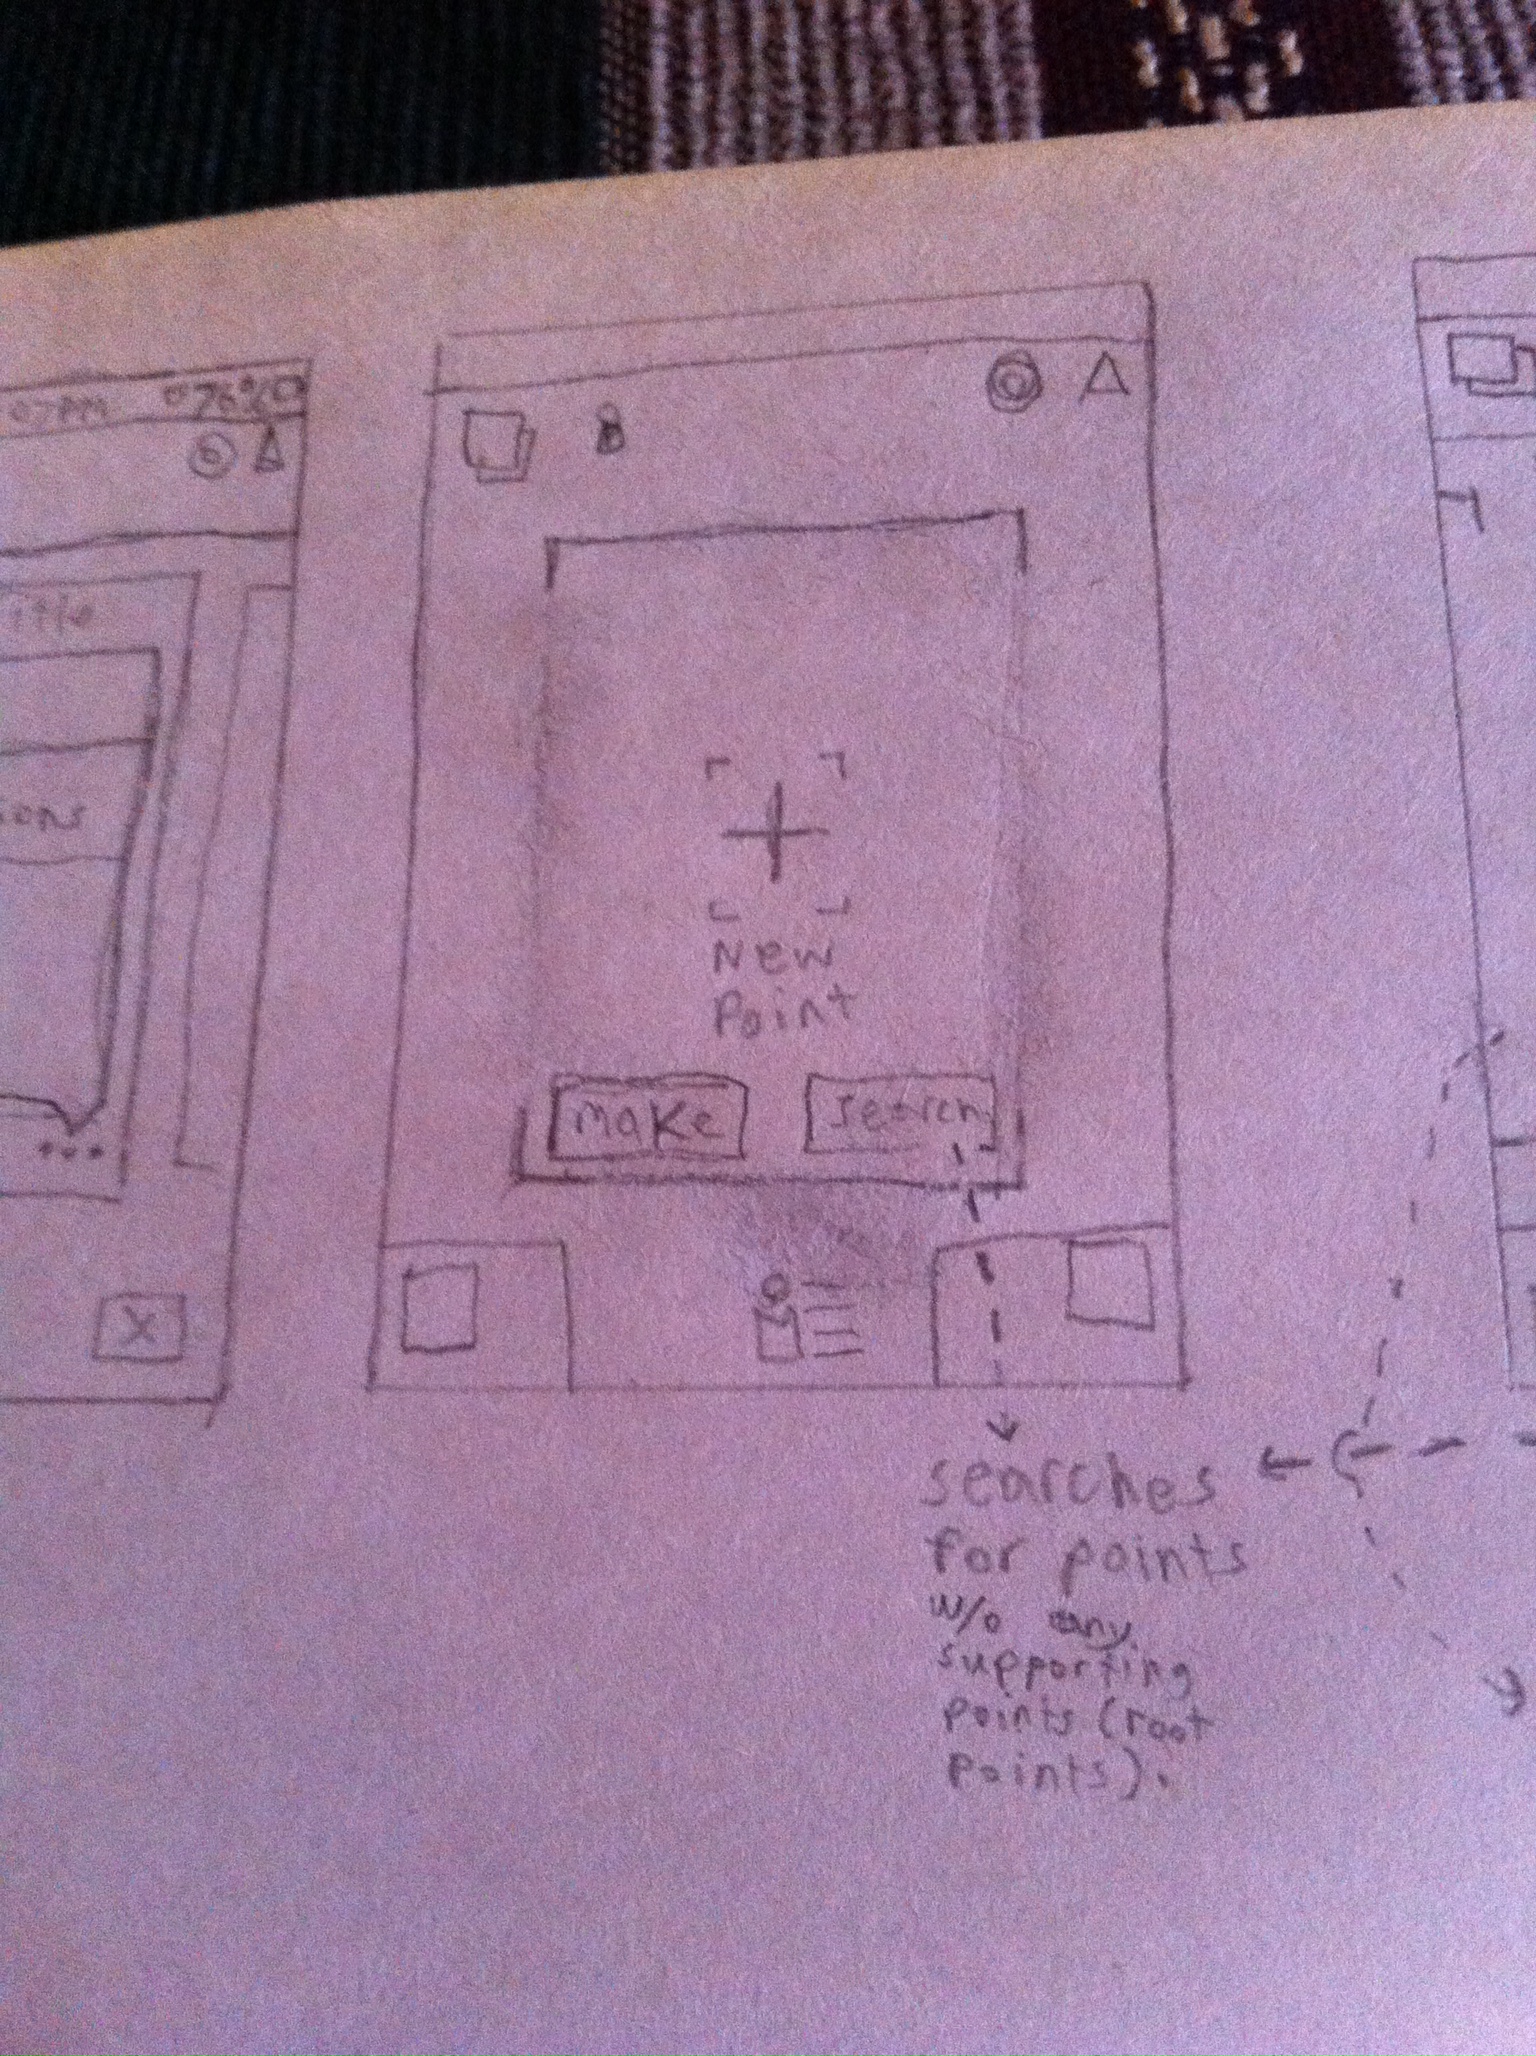 07PM 76%
8
itle
ions
New
Point
make
search
X
searches
for points
w/o any
supporting
points (root
points).